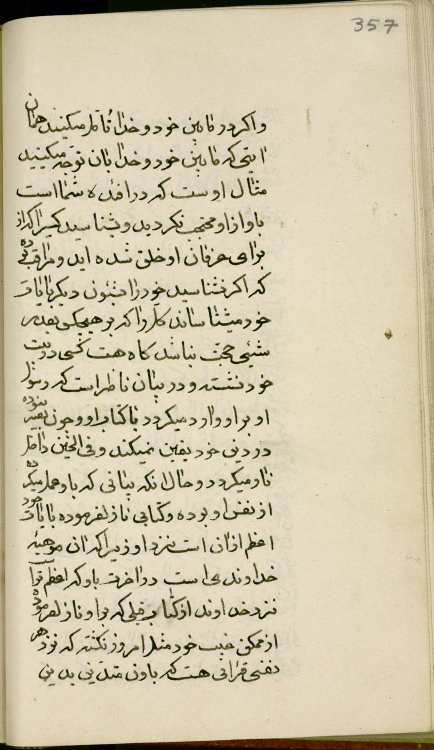 357
واگر در مابین خود و خدا تأمل میکنید همان
ایتی که مابین خود و خدا بان توجه میکنید
مثال اوست که در افئده شما است
باو از او محتجب نگردید و بشناسید کسیرا که از
برای عرفان او خلق شده اید و مراقب بوده
که اگر نشناسید خود را مثنون دیگر بایات
خود مشناسانند کلرا که بر هیچ بقدر
شیئی حجت نباشد گاه هست کسی در بیت
خود نشسته و در بیان ناظر است که رسول
او بر او وارد میگردد با کتاب او و چون
در دین خود یقین نمیکند و فی الحین داخل
نار میگردد و حال انکه بیانی که باو عمل میکرده
از نفس او بوده و کتابی نازلفرموده بایات خود
اعظم از ان است نزد او زیرا که ان موهبة
خداوندی است در اخرت باو که اعظم تر است
نزد خداوند از کتاب قبلی که بر او نازلفرموده
از ممکن غیب خود مثل امروز نگشته که نزد هر
نفسی قرانی هست که باون متدین بدین